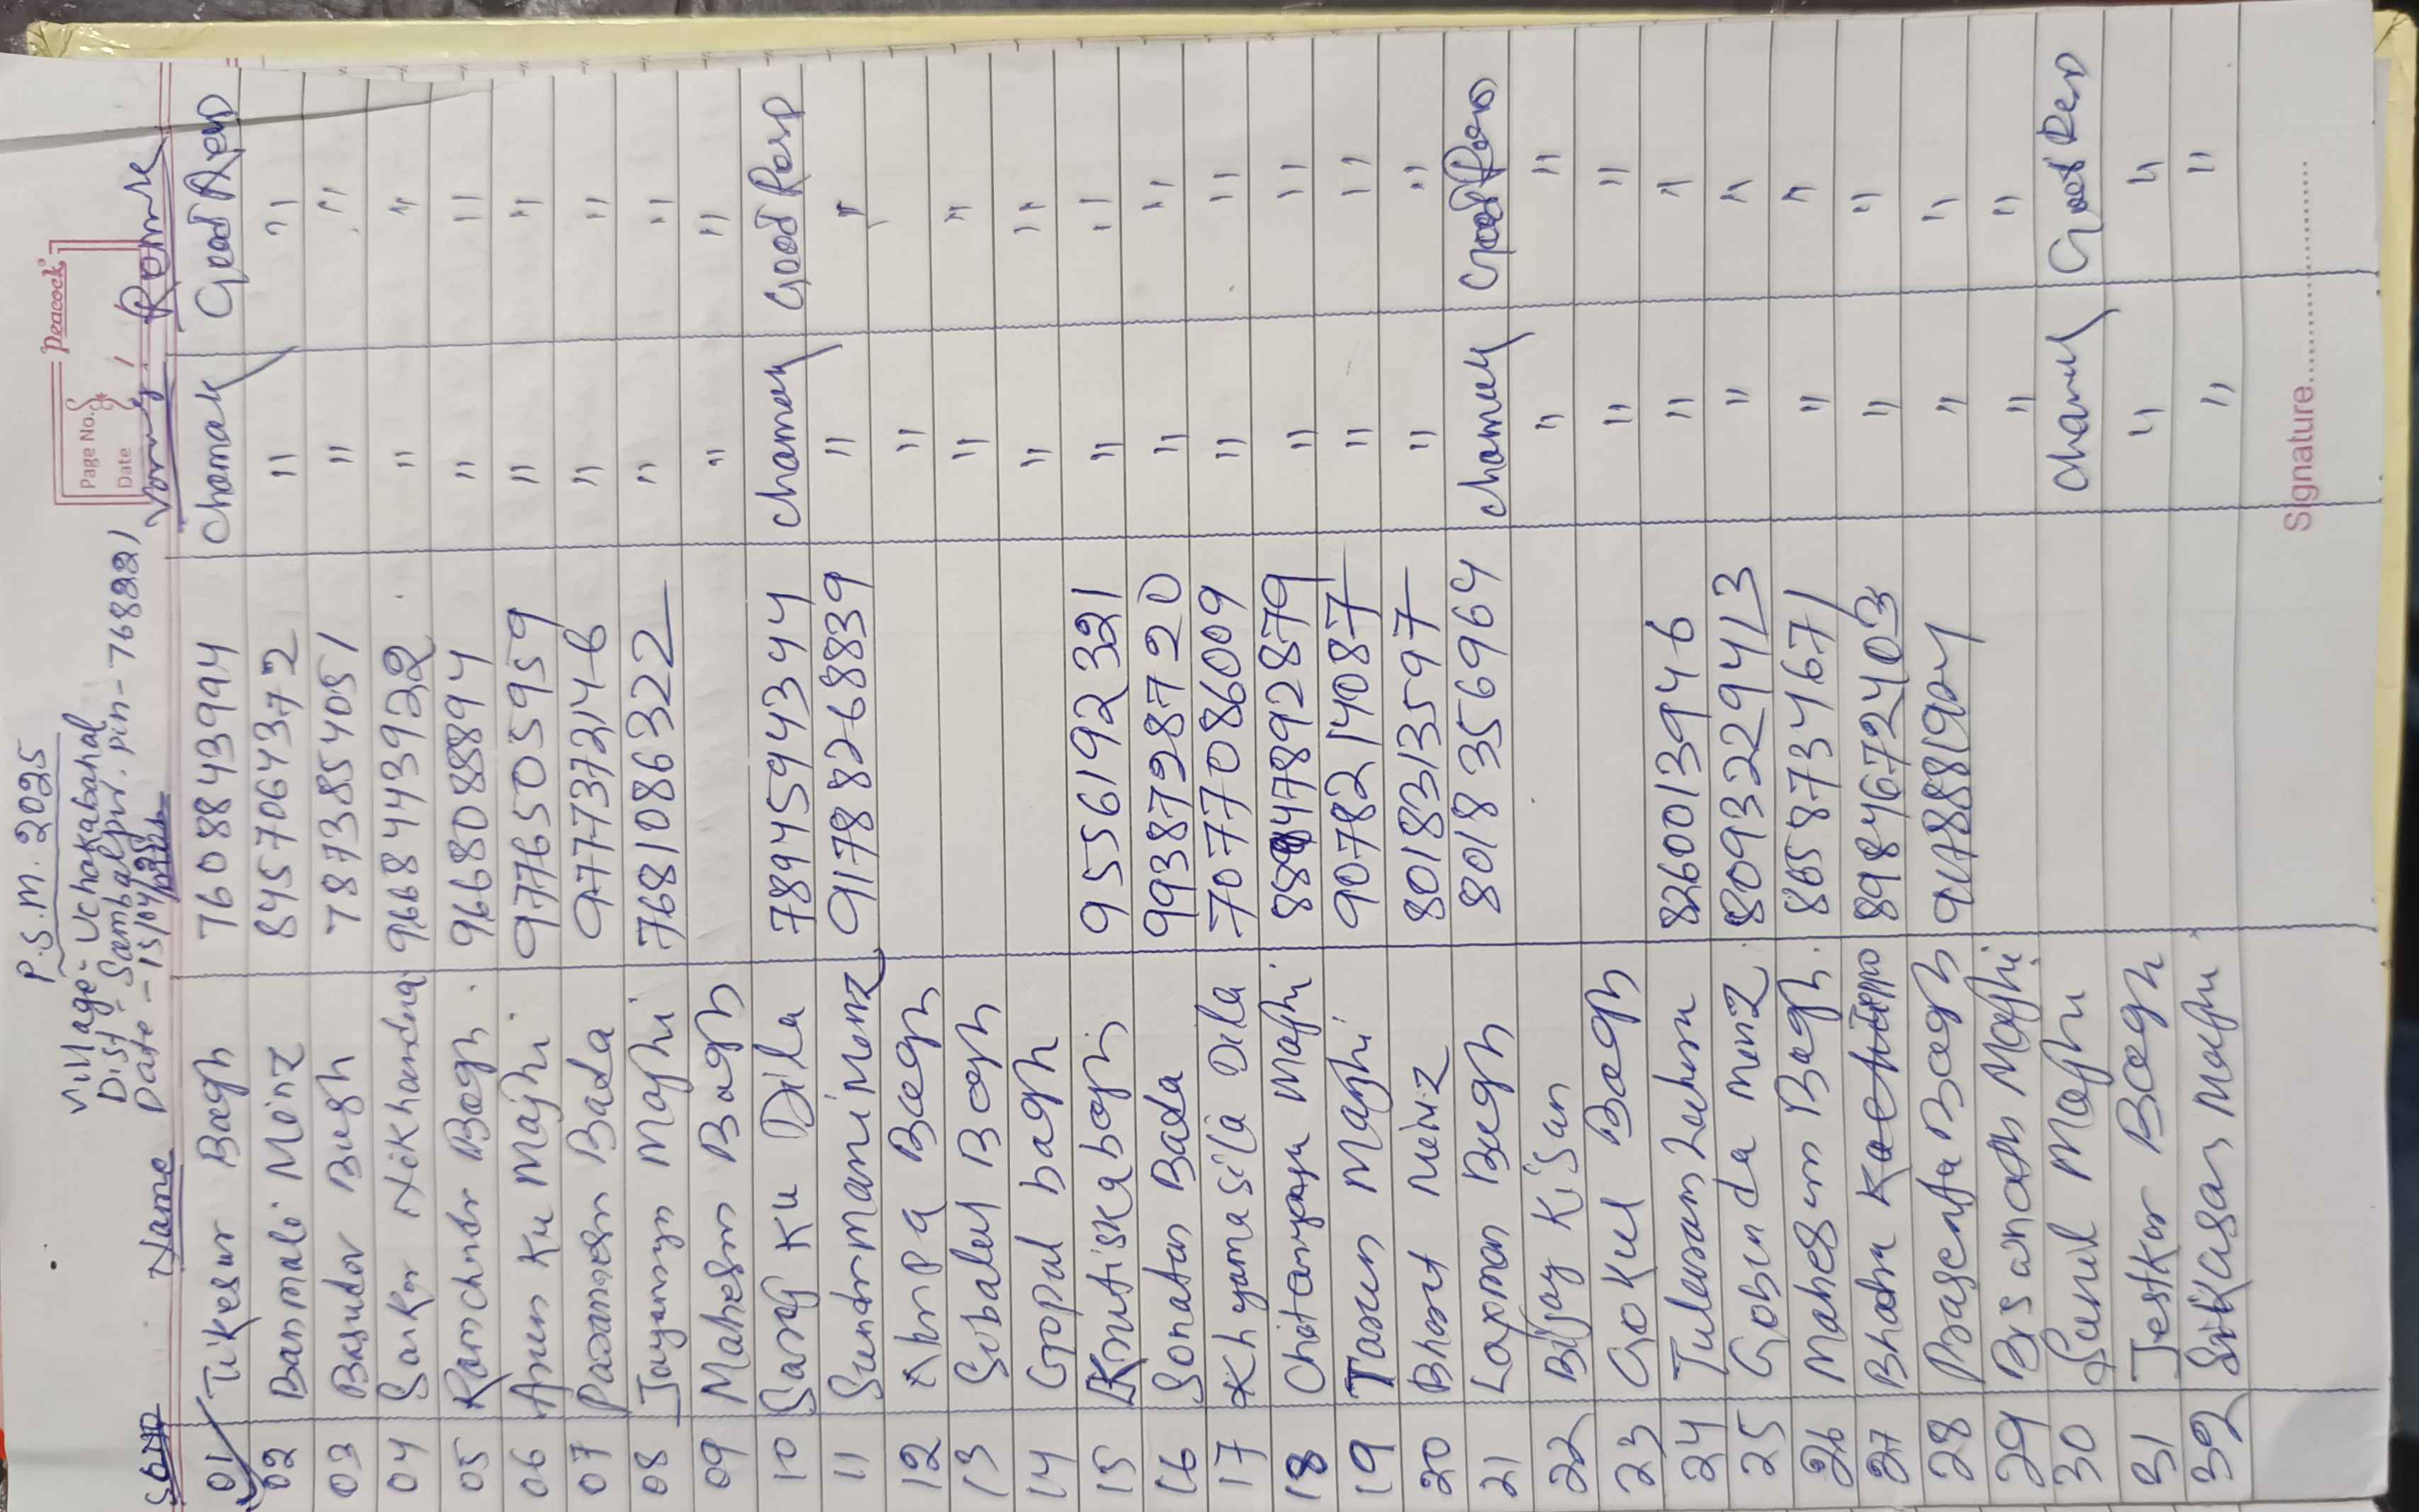 P.S.M. 2025
Village - Uchakabahal
Dist - Sambalpur. Pin - 768221
Date - 15/04/25
Peacock
Page No.
Date
Name
01 Tikesur Bagh 7608843994 Chamak Good Resp
02 Banmali Minz 8457064372 " "
03 Basudev Bagh 7873854051 " "
04 9668443922 " "
05 Ramchndr Bagh. 9668088894 " "
06 Arun Ku Majhi. 9776505959 " "
07 Parameswr Bada 9777372146 " "
08 Jayaram Majhi 7681086322 " "
09 Mahesm Bagh " "
10 Saroj Ku Dila 7894594344 Chamak Good Resp
11 Sundrmani Monz 9178826839 " "
12 Bagh "
13 Subalal Bagh " "
14 Gopal bagh " "
15 9556192321 " "
16 Sonatan Bada 9938798720 " "
17 Khyamasila Dila 7077086009 " "
18 Chaitanya Majhi 8847892879 " "
19 Tarun Majhi 9078214087 " "
20 Bharat Minz 8018313597 " "
21 Laxman Bagh 8018356964 Chamak Good Resp
22 Bijay Kisan " "
23 Gokul Bagh " "
24 Tularam 8260013946 " "
25 Gobinda Minz. 8093229413 " "
26 Mahesm Bagh. 8658734671 " "
27 Bhadra 8984672403 " "
28 Prasenta Bagh " "
29 Majhi " "
30 Sunil Majhi Chamak Good Resp
31 Bagh " "
32 Majhi " "
Signature